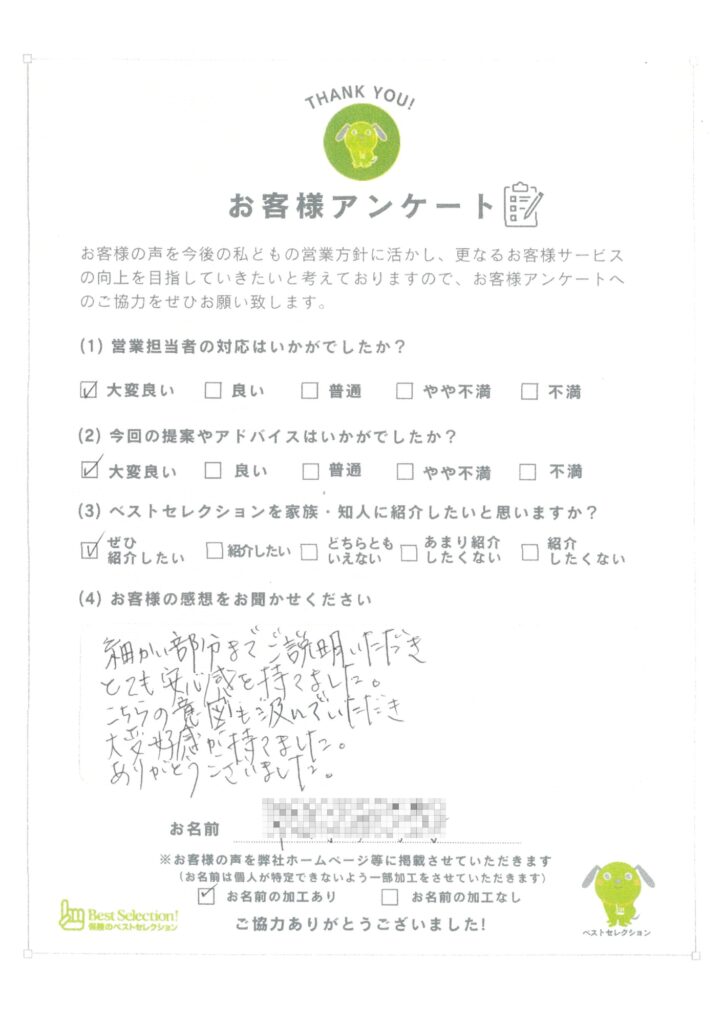 THANK YOU!
お客様アンケート
お客様の声を今後の私どもの営業方針に活かし、更なるお客様サービス
の向上を目指していきたいと考えておりますので、お客様アンケートへ
のご協力をぜひお願い致します。
(1) 営業担当者の対応はいかがでしたか？
大変良い 良い 普通 やや不満 不満
(2) 今回の提案やアドバイスはいかがでしたか？
大変良い 良い 普通 やや不満 不満
(3) ベストセレクションを家族・知人に紹介したいと思いますか？
ぜひ
紹介したい 紹介したい どちらとも
いえない あまり紹介
したくない 紹介
したくない
(4) お客様の感想をお聞かせください
細かい部分までご説明いただき
とても安心感を持てました。
こちらの意図も汲んでいただき
大変好感が持てました。
ありがとうございました。
お名前
※お客様の声を弊社ホームページ等に掲載させていただきます
(お名前は個人が特定できないよう一部加工をさせていただきます)
お名前の加工あり お名前の加工なし
Best Selection!
保険のベストセレクション
ご協力ありがとうございました!
ベストセレクション